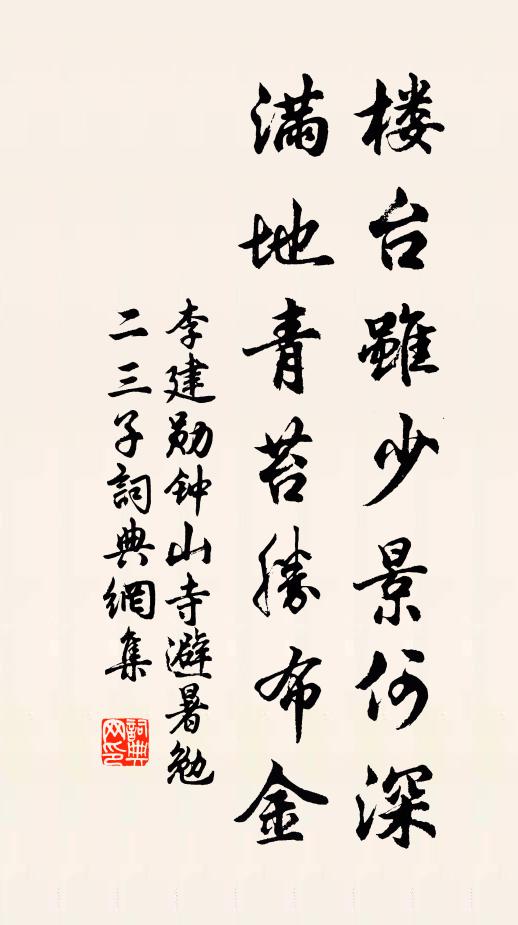 楼台雖少景何深
滿地青苔勝布金
李建勋钟山寺避暑勉
二三子詞典網集
詞典网印